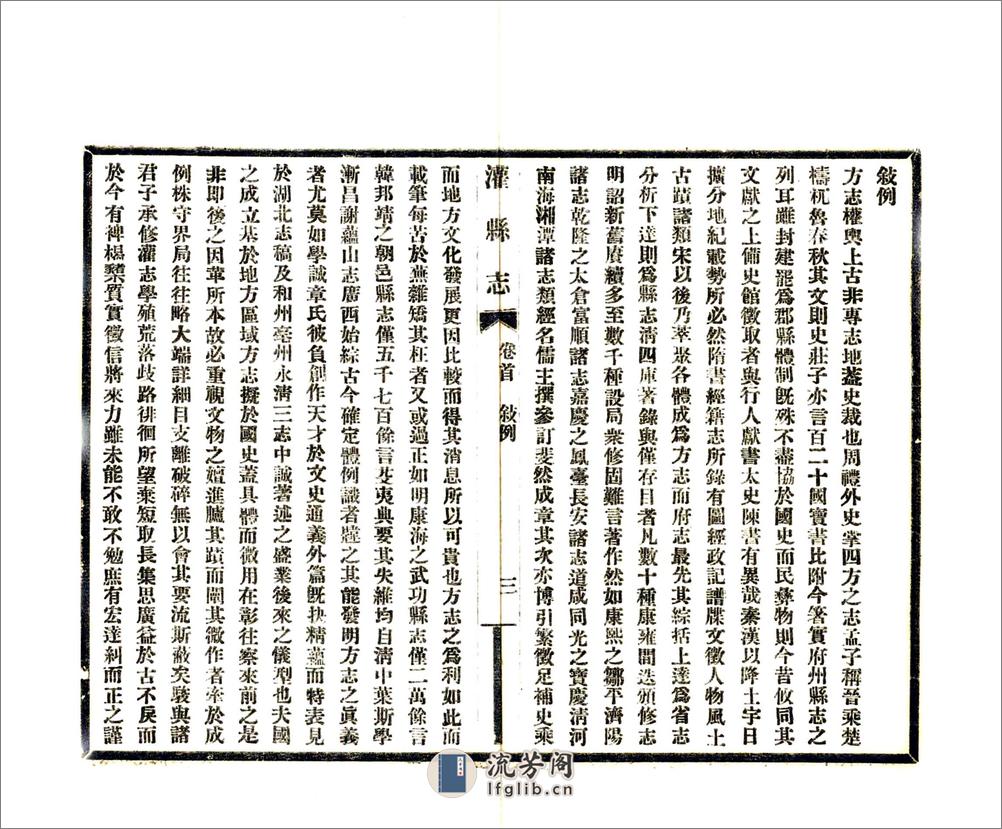 敍例
方志權輿上古非專志地葢史裁也周禮外史掌四方之志孟子稱晉乘楚
檮杌魯春秋其文則史莊子亦言百二十國寶書比附今箸實府州縣志之
列耳雖封建罷爲郡縣體制旣殊不盡協於國史而民彝物則今昔攸同其
文獻之上備史館徵取者與行人獻書太史陳書有異哉秦漢以降土宇日
擴分地紀載勢所必然隋書經籍志所錄有圖經政記譜牒文徵人物風土
古蹟諸類宋以後乃萃聚各體成爲方志而府志最先其綜括上達爲省志
分析下達則爲縣志淸四庫著錄與僅存目者凡數十種康雍間迭頒修志
明詔新舊賡續多至數千種設局衆修固難言著作然如康熙之鄒平濟陽
諸志乾隆之太倉富順諸志嘉慶之鳳臺長安諸志道咸同光之寶慶淸河
南海湘潭諸志類經名儒主撰參訂斐然成章其次亦博引繁徵足補史乘
灌縣志
卷首 敍例
三
而地方文化發展更因比較而得其消息所以可貴也方志之爲利如此而
載筆每苦於蕪雜矯其枉者又或過正如明康海之武功縣志僅二萬餘言
韓邦靖之朝邑縣志僅五千七百餘言芟夷典要其失維均自淸中葉斯學
漸昌謝蘊山志廣西始綜古今確定體例識者韙之其能發明方志之眞義
者尤莫如學誠章氏彼負創作天才於文史通義外篇旣抉精蘊而特表見
於湖北志稿及和州亳州永淸三志中誠著述之盛業後來之儀型也夫國
之成立基於地方區域方志擬於國史葢具體而微用在彰往察來前之是
非卽後之因革所本故必重視文物之嬗進臚其蹟而闡其微作者牽於成
例株守界局往往略大端詳細目支離破碎無以會其要流斯蔽矣駿與諸
君子承修灌志學殖荒落歧路徘徊所望棄短取長集思廣益於古不戾而
於今有裨楬櫫質實徵信將來力雖未能不敢不勉庶有宏達糾而正之謹
流芳阁
lfglib.cn